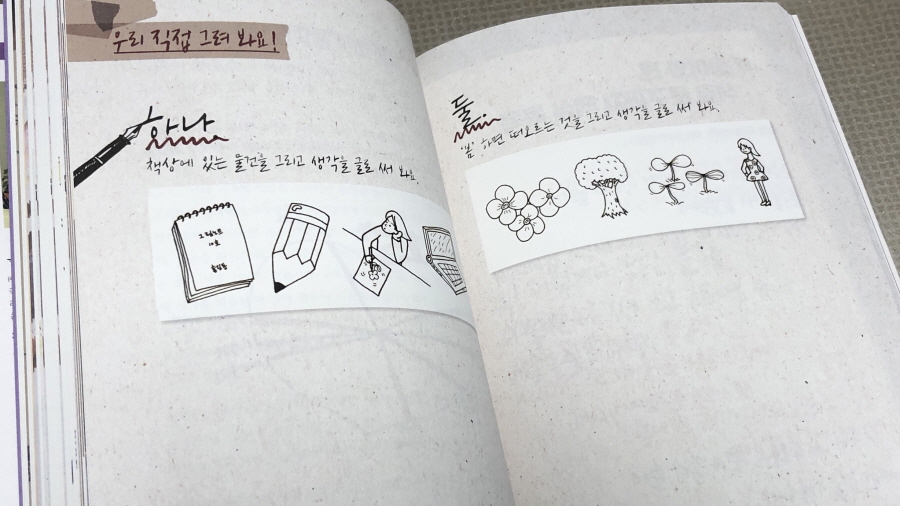 우리 직접 그려 봐요!
하나
책상에 있는 물건을 그리고 생각을 글로 써 봐요.
둘
'봄' 하면 떠오르는 것을 그리고 생각을 글로 써 봐요.